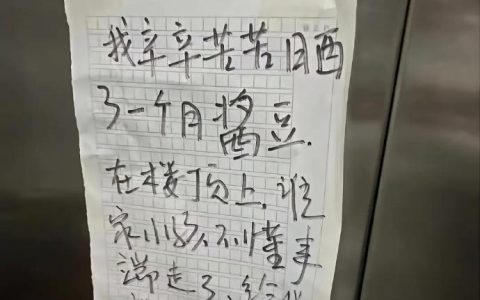 我辛辛苦苦晒
了一个月酱豆.
在楼顶上,谁
家小孩不懂事
端走了,给